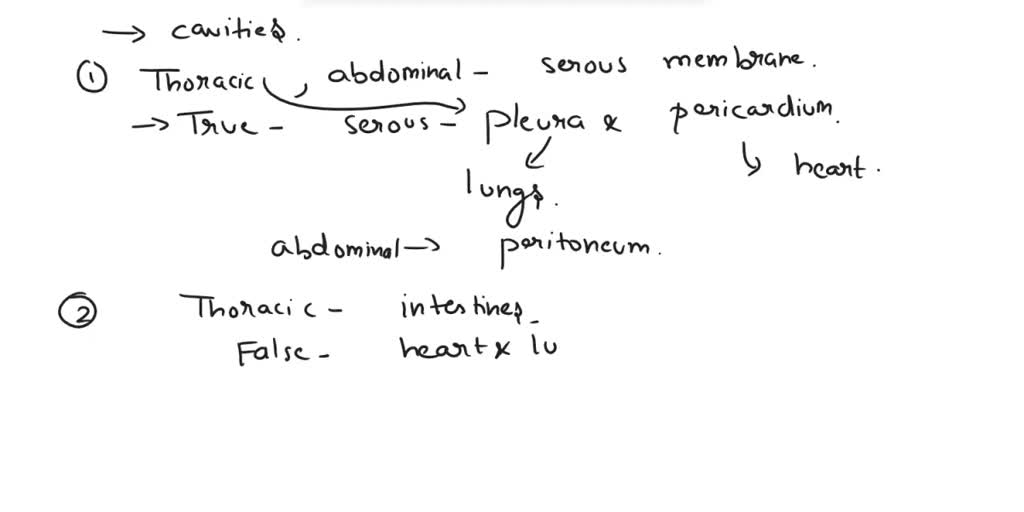 → cavities.
① Thoracic, abdominal - serous membrane.
→ True - serous - pleura & pericardium.
↳ heart.
lungs.
abdominal → peritoneum.
② Thoracic - intestines -
False - heart & lu